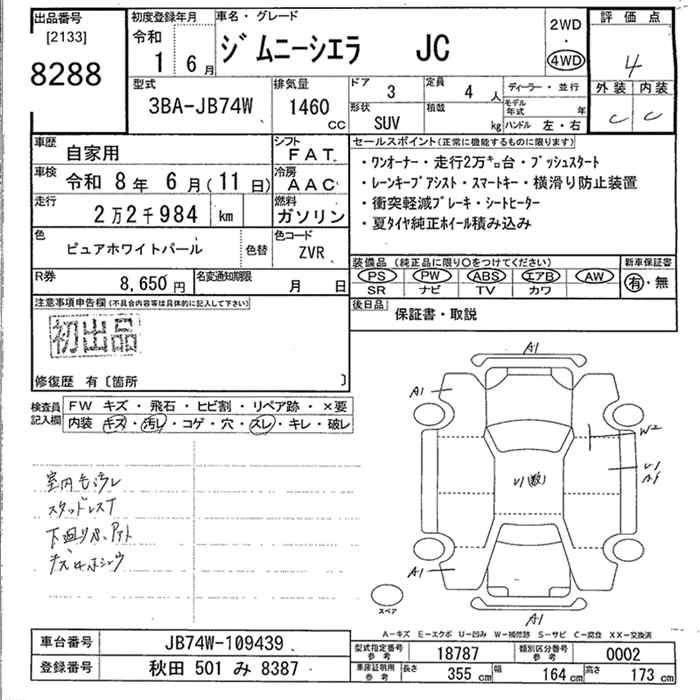 出品番号
[2133]
8288
初度登録年月
令和
1 6月
車名・グレード
ジムニーシエラ JC
2WD
・
4WD
評価点
4
外装 内装
C C
型式
3BA-JB74W
排気量
1460
CC
ドア
3
定員
4 人
ディーラー・並行
モデル年式 年
形状
SUV
積載
kg
ハンドル 左・右
車歴
自家用
シフト
FAT
車検
令和 8年 6月(11日)
冷房
AAC
走行
2万2千984 km
燃料
ガソリン
色
ピュアホワイトパール
色替
色コード
ZVR
R券
8,650円
名変通知期限
月 日
セールスポイント(正常に機能するものに限ります)
・ワンオーナー・走行2万㌔台・プッシュスタート
・レーンキープアシスト・スマートキー・横滑り防止装置
・衝突軽減ブレーキ・シートヒーター
・夏タイヤ純正ホイール積み込み
装備品(純正品に限り○をつけてください)
PS PW ABS エアB AW
SR ナビ TV カワ
新車保証書
有・無
後日品
保証書・取説
注意事項申告欄(不具合内容等は具体的に記入して下さい)
初出品
修復歴 有〔箇所 〕
検査員記入欄
FW キズ・飛石・ヒビ割・リペア跡・×要
内装 キズ・汚レ・コゲ・穴・スレ・キレ・破レ
スタッドレスT
A1
A1
W2
U1
A1
U1(数)
A1
A1
スペア
A-キズ E-エクボ U-凹み W-補修跡 S-サビ C-腐食 XX-交換済
車台番号
JB74W-109439
登録番号
秋田 501 み 8387
型式指定番号
参考
18787
類別区分番号
参考
0002
車庫証明用
参考
長さ 355 cm 幅 164 cm 高さ 173 cm